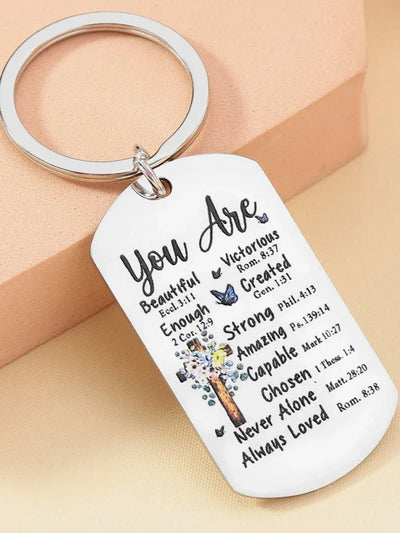 You Are
Beautiful
Eccl. 3:11
Victorious
Rom. 8:37
Enough
2 Cor. 12:9
Created
Gen. 1:31
Strong Phil. 4:13
Amazing Ps. 139:14
Capable Mark 10:27
Chosen 1 Thess. 1:4
Never Alone Matt. 28:20
Always Loved Rom. 8:38